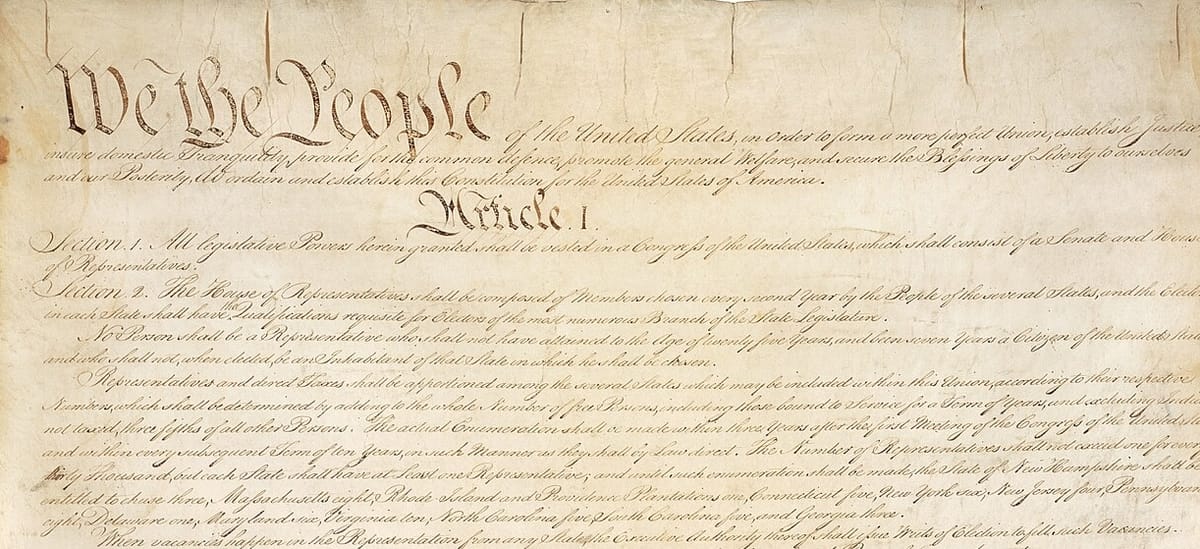 We the People of the United States, in Order to form a more perfect Union, establish Justic
insure domestic Tranquility, provide for the common defence, promote the general Welfare, and secure the Blessings of Liberty to ourselves
and our Posterity, do ordain and establish this Constitution for the United States of America.
Article. I.
Section. 1. All legislative Powers herein granted shall be vested in a Congress of the United States, which shall consist of a Senate and House
of Representatives.
Section. 2. The House of Representatives shall be composed of Members chosen every second Year by the People of the several States, and the Elect
in each State shall have the Qualifications requisite for Electors of the most numerous Branch of the State Legislature.
No Person shall be a Representative who shall not have attained to the Age of twenty five Years, and been seven Years a Citizen of the United Stat
and who shall not, when elected, be an Inhabitant of that State in which he shall be chosen.
Representatives and direct Taxes shall be apportioned among the several States which may be included within this Union, according to their respective
Numbers, which shall be determined by adding to the whole Number of free Persons, including those bound to Service for a Term of Years, and excluding India
not taxed, three fifths of all other Persons. The actual Enumeration shall be made within three Years after the first Meeting of the Congress of the United Sta
and within every subsequent Term of ten Years, in such Manner as they shall by Law direct. The Number of Representatives shall not exceed one for every
thirty Thousand, but each State shall have at Least one Representative; and until such enumeration shall be made, the State of New Hampshire shall be
entitled to chuse three, Massachusetts eight, Rhode Island and Providence Plantations one, Connecticut five, New York six, New Jersey four, Pennsylvan
eight, Delaware one, Maryland six, Virginia ten, North Carolina five, South Carolina five, and Georgia three.
When vacancies happen in the Representation from any State, the Executive Authority thereof shall issue Writs of Election to fill such Vacancies.